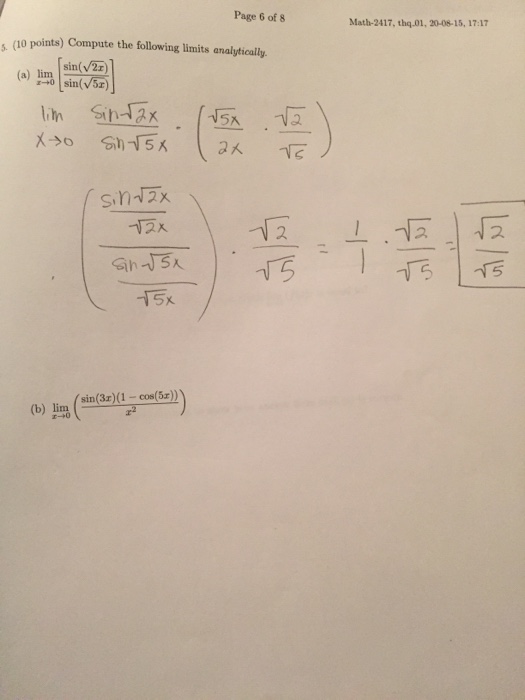 Page 6 of 8
Math-2417, thq.01, 20-08-15, 17:17
5. (10 points) Compute the following limits analytically.
(a) lim x→0 [sin(√2x)/sin(√5x)]
lim x→0 sin√2x/sin√5x · (√5x/2x · √2/√5)
((sin√2x/√2x)/(sin√5x/√5x)) · √2/√5 = 1/1 · √2/√5 = √2/√5
(b) lim x→0 (sin(3x)(1 − cos(5x))/x²)